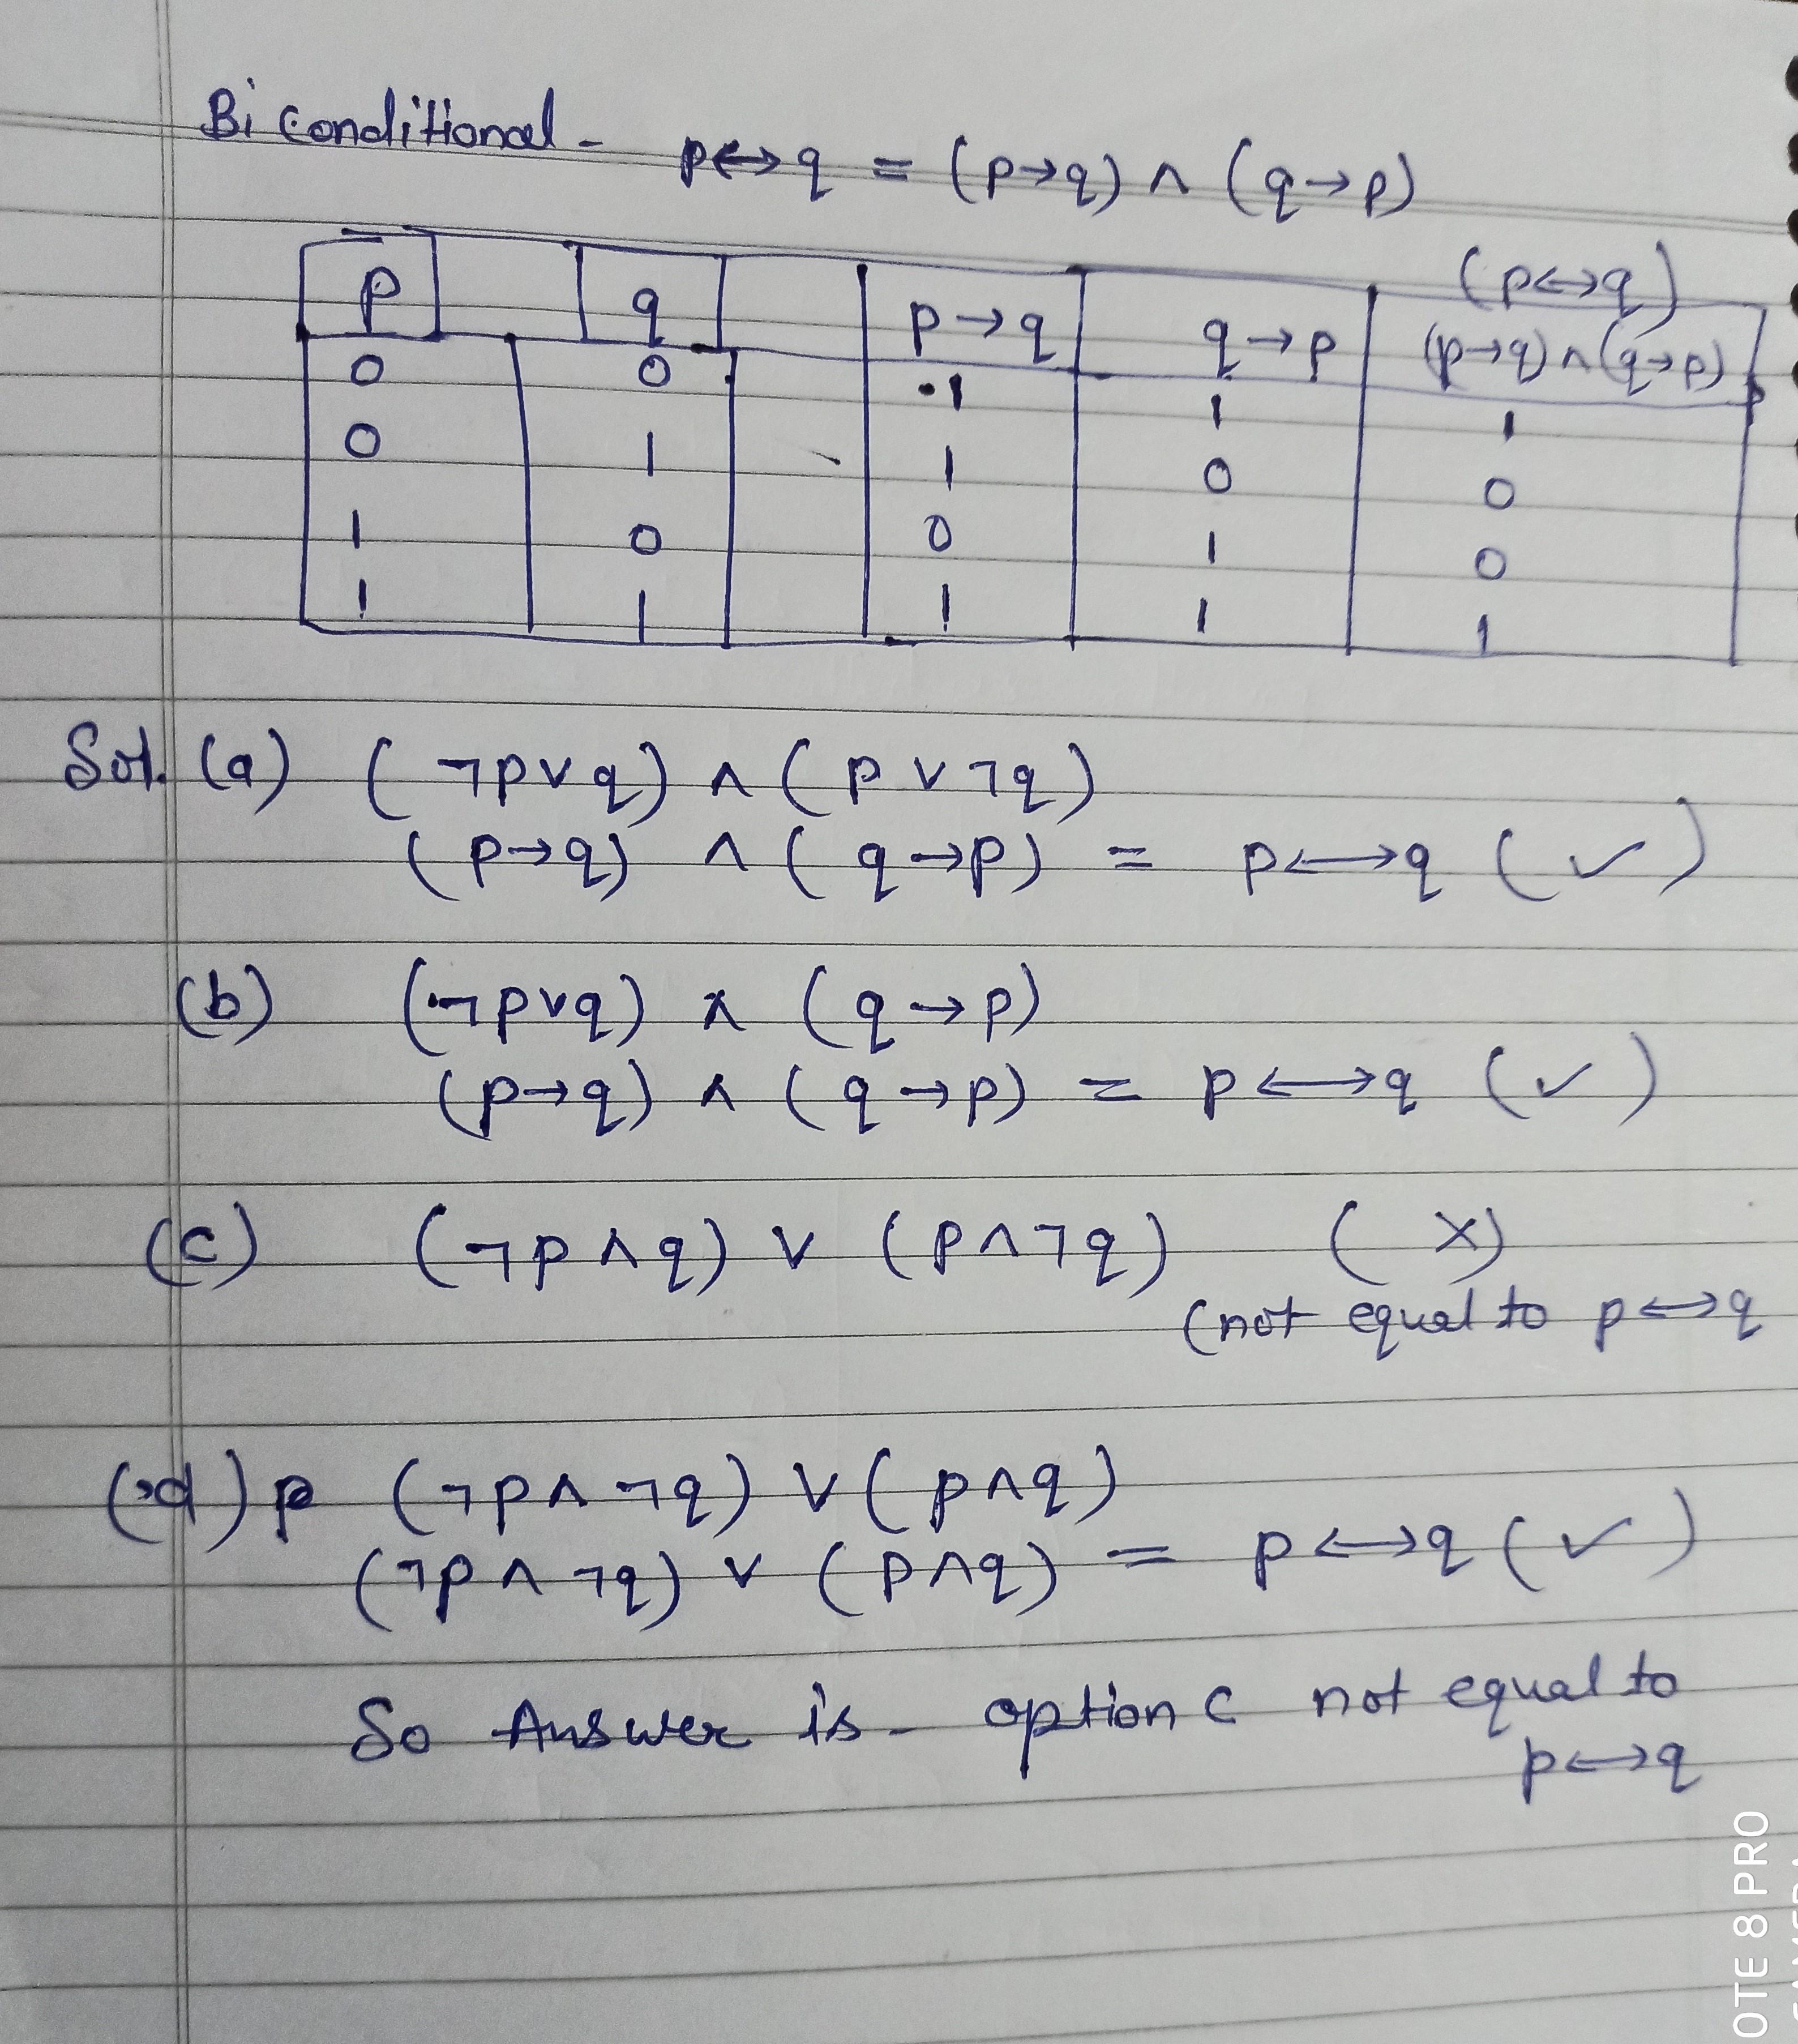 Bi Conditional - p↔q = (p→q) ∧ (q→p)
(p↔q)
p q p→q q→p (p→q)∧(q→p)
0 0 1 1 1
0 1 1 0 0
1 0 0 1 0
1 1 1 1 1
Sol. (a) (¬p∨q) ∧ (p∨¬q)
(p→q) ∧ (q→p) = p↔q (✓)
(b) (¬p∨q) ∧ (q→p)
(p→q) ∧ (q→p) = p↔q (✓)
(c) (¬p∧q) ∨ (p∧¬q) (×)
(not equal to p↔q
(d) p (¬p∧¬q) ∨ (p∧q)
(¬p∧¬q) ∨ (p∧q) = p↔q (✓)
So Answer is - option C not equal to
p↔q
OTE 8 PRO